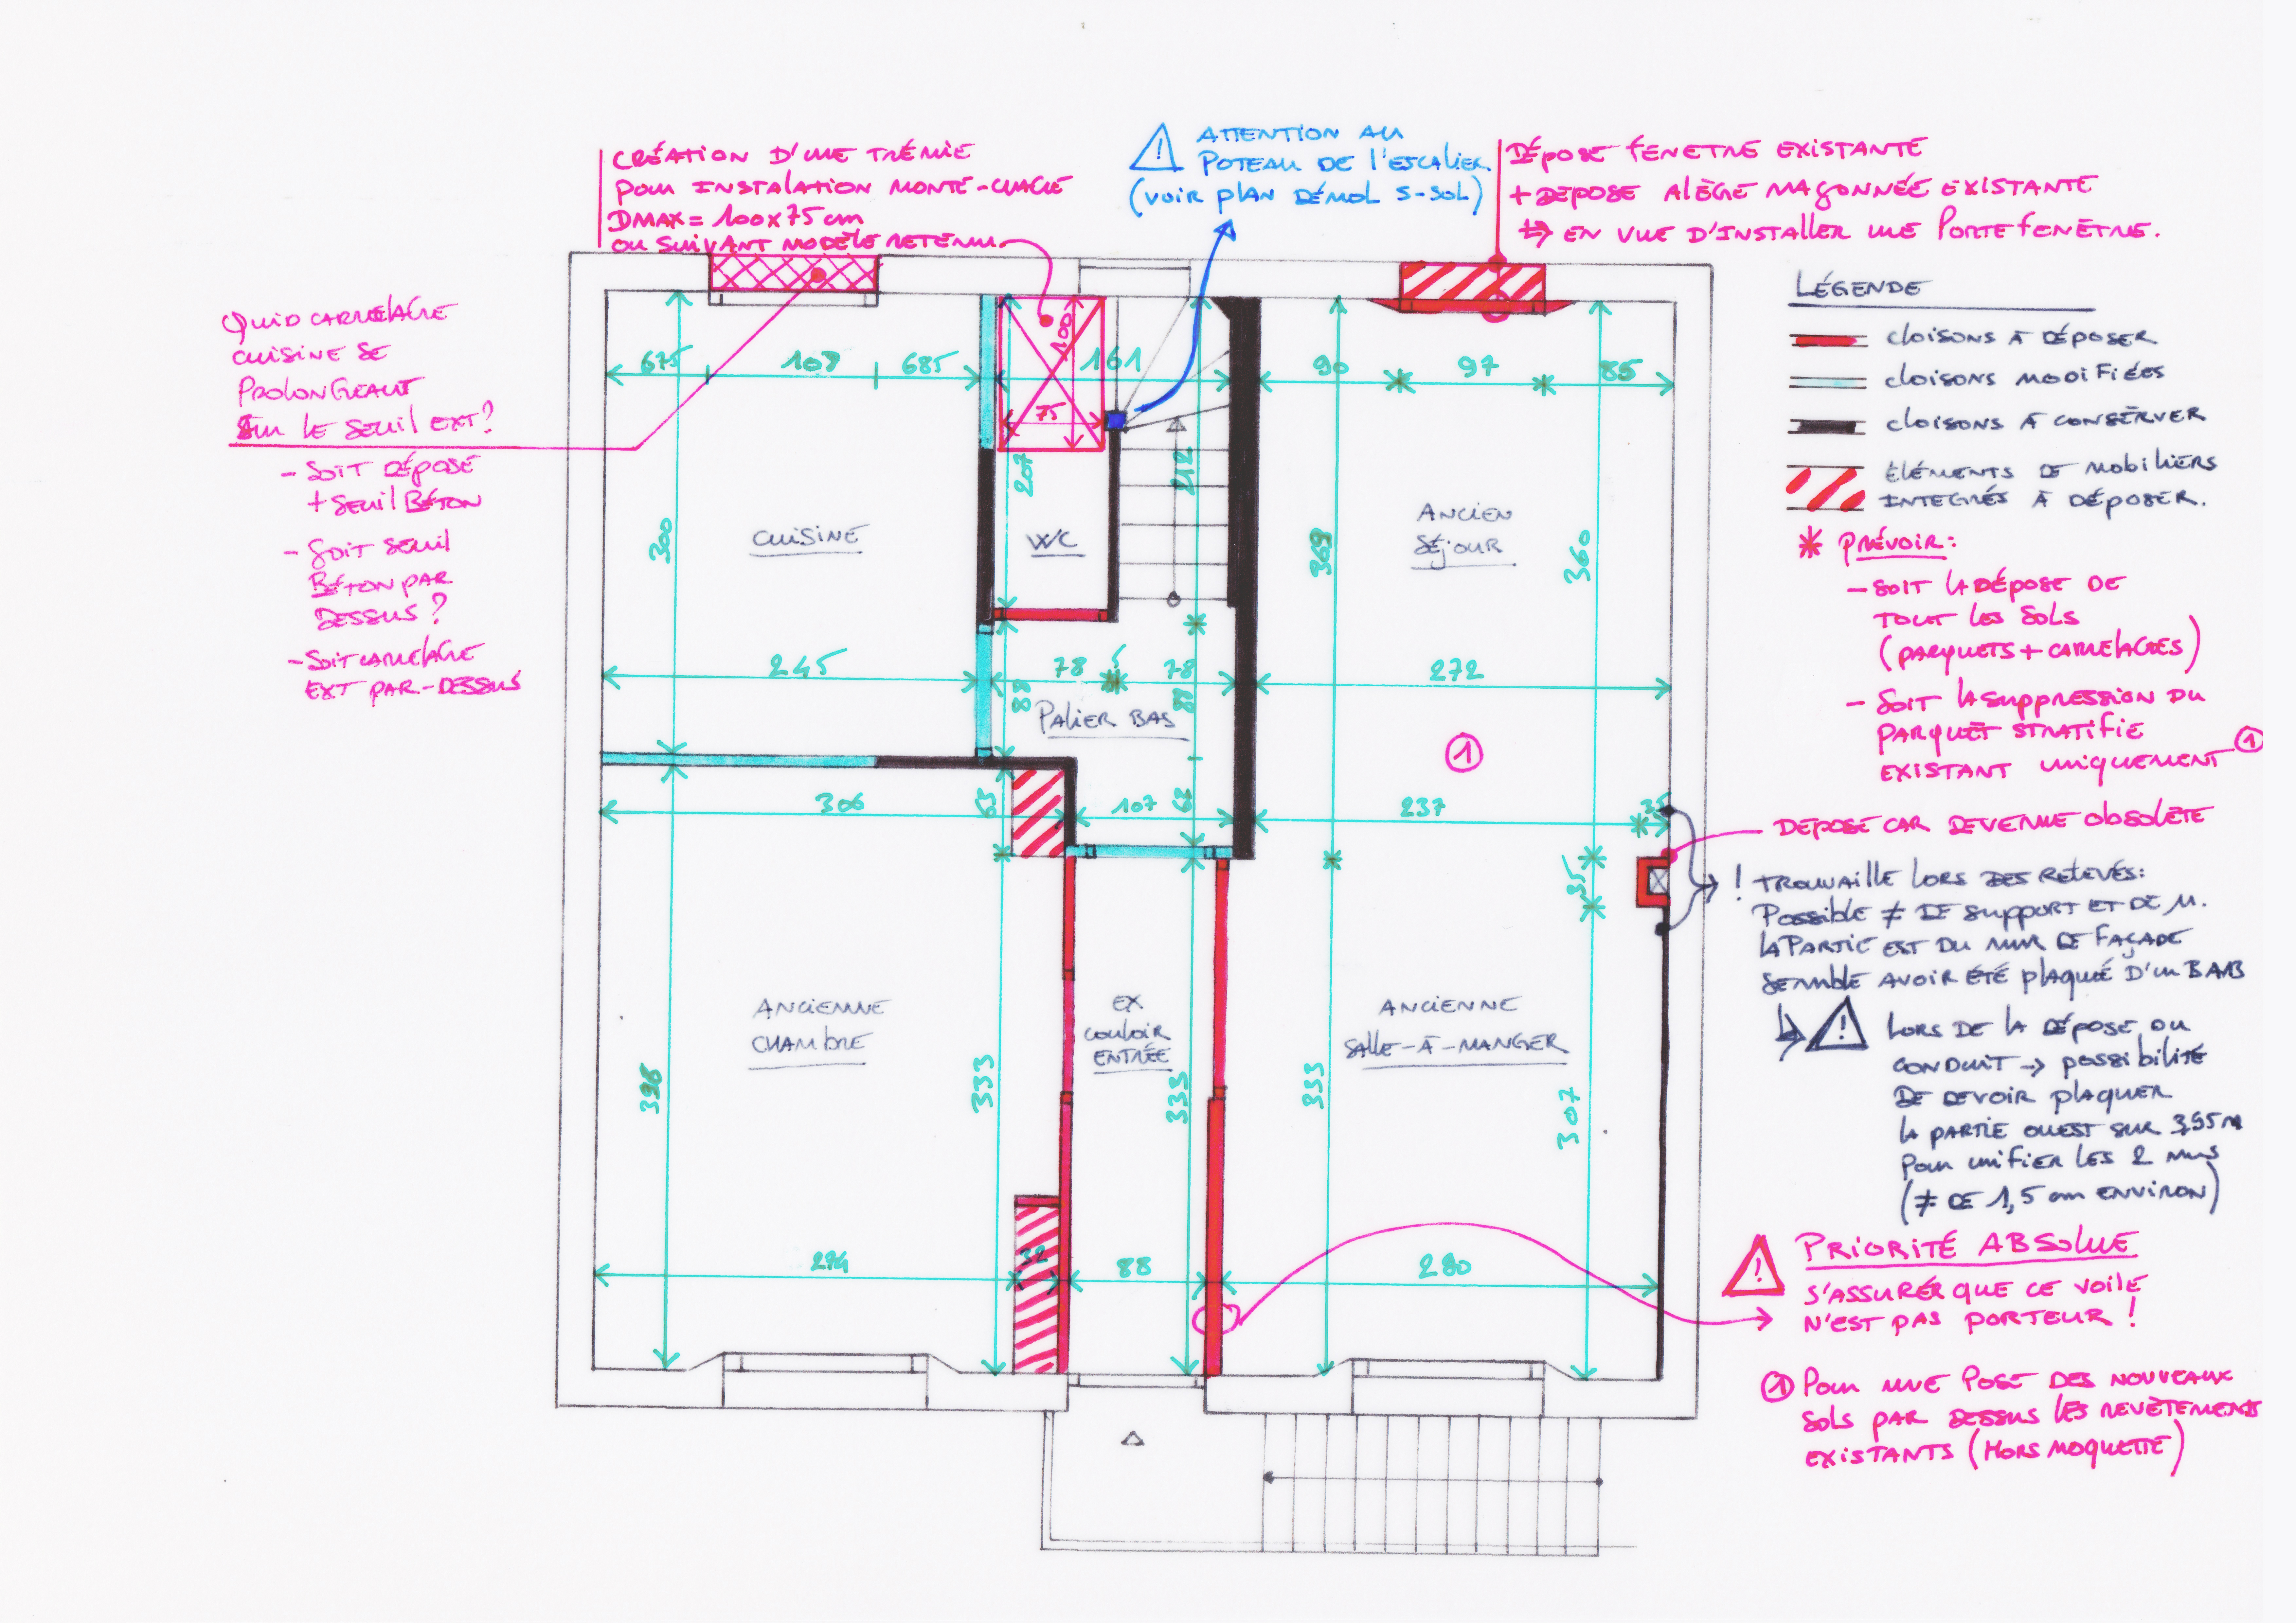 CRÉATION D'UNE TRÉMIE
POUR INSTALATION MONTE-CHARGE
DMAX = 100x75 cm
OU SUIVANT MODÈLE RETENU
⚠ ATTENTION AU
POTEAU DE L'ESCALIER
(VOIR PLAN DÉMOL S-SOL)
DÉPOSE FENETRE EXISTANTE
+ DEPOSE ALÈGE MAÇONNÉE EXISTANTE
EN VUE D'INSTALLER UNE PORTE FENÊTRE.
QUID CARRELAGE
CUISINE SE
PROLONGEANT
SUR LE SEUIL EXT?
- SOIT DÉPOSE
+ SEUIL BÉTON
- SOIT SEUIL
BÉTON PAR
DESSUS ?
- SOIT CARRELAGE
EXT PAR-DESSUS
LÉGENDE
CLOISONS À DÉPOSER
CLOISONS MODIFIÉES
CLOISONS À CONSERVER
ÉLÉMENTS DE MOBILIERS
INTEGRÉS À DÉPOSER.
* PRÉVOIR:
- SOIT LA DÉPOSE DE
TOUT LES SOLS
(PARQUETS + CARRELAGES)
- SOIT LA SUPPRESSION DU
PARQUET STRATIFIE
EXISTANT UNIQUEMENT ①
DEPOSE CAR DEVENUE OBSOLÈTE
! TROUVAILLE LORS DES RELEVÉS:
POSSIBLE ≠ DE SUPPORT ET DE M.
LA PARTIE EST DU MUR DE FAÇADE
SEMBLE AVOIR ÉTÉ PLAQUÉ D'UN BA13
⚠ LORS DE LA DÉPOSE DU
CONDUIT → POSSIBILITÉ
DE DEVOIR PLAQUER
LA PARTIE OUEST SUR 3,95 M
POUR UNIFIER LES 2 MURS
(≠ DE 1,5 cm ENVIRON)
⚠ PRIORITÉ ABSOLUE
S'ASSURER QUE CE VOILE
N'EST PAS PORTEUR !
① POUR UNE POSE DES NOUVEAUX
SOLS PAR DESSUS LES REVÊTEMENTS
EXISTANTS (HORS MOQUETTE)
675 108 685 161 90 97 85
100
75
207 212
300 369 360
CUISINE
WC
ANCIEN
SÉJOUR
245 78 5 78 272
88 88
PALIER BAS
①
306 63 107 63 237 35
35
ANCIENNE
CHAMBRE
EX
COULOIR
ENTRÉE
ANCIENNE
SALLE-À-MANGER
396 333 333 333 307
274 32 88 280